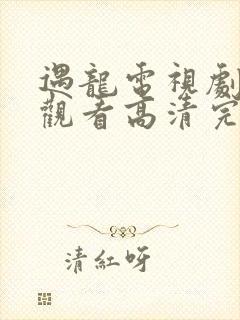 遇龍電視劇
觀看高清完
清紅呀